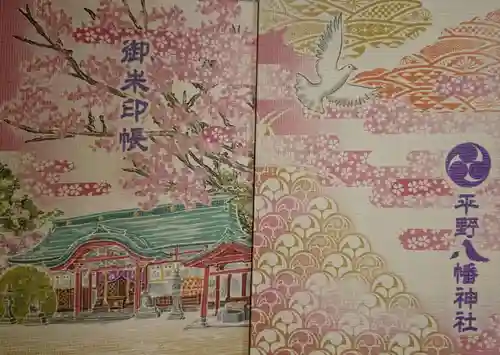 御朱印帳
平野八幡神社